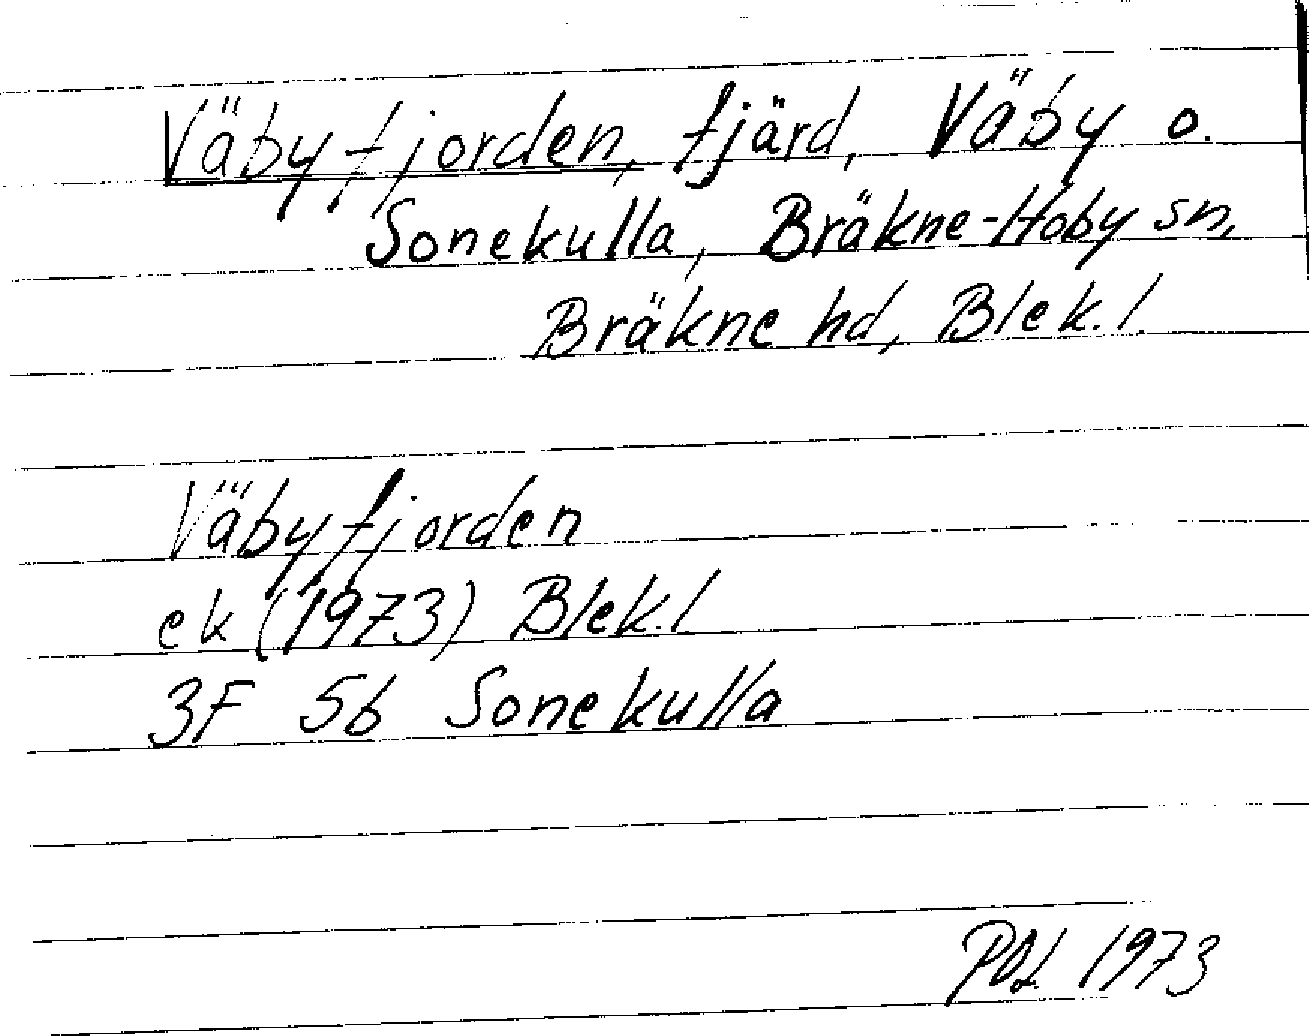 Väbyfjorden, fjärd, Väby o.
Sonekulla, Bräkne-Hoby sn,
Bräkne hd, Blek. l.
Väbyfjorden
ek (1973) Blek. l
3F 5b Sonekulla
1973